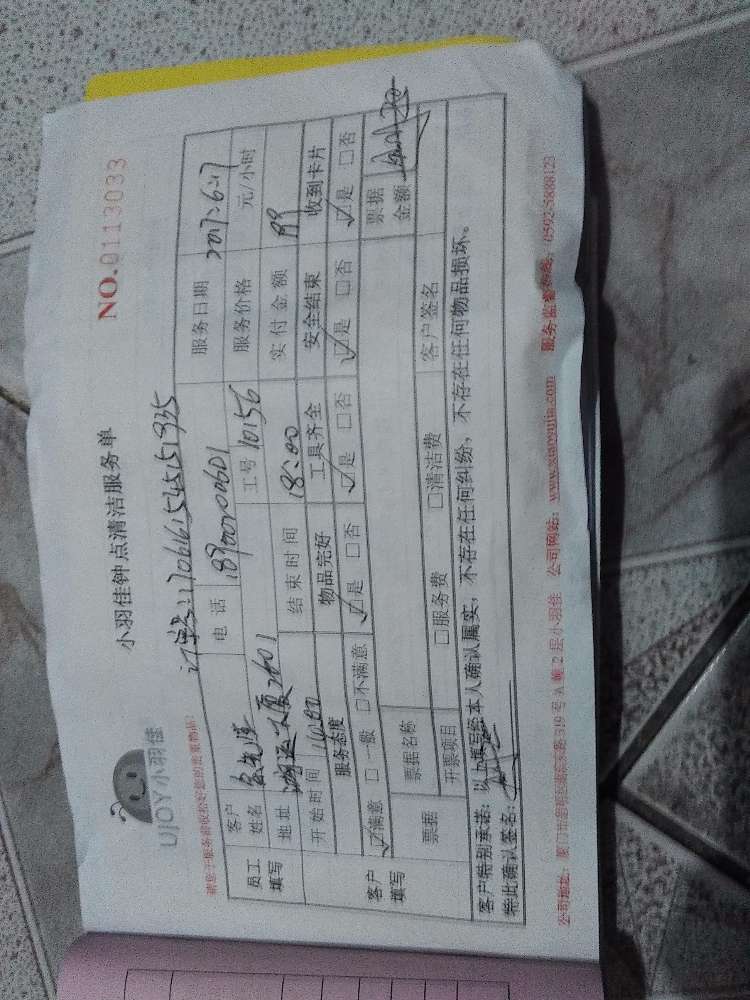 UJOY小羽佳
小羽佳钟点清洁服务单
NO.0113033
订单:11706161545151935
客户姓名 电话 18900700601 服务日期 2017.6.17
员工填写 地址 大厦2601 工号 10156 服务价格 元/小时
开始时间 结束时间 18:00 实付金额 89
服务态度 物品完好 工具齐全 安全结束 收到卡片
☑满意 □一般 □不满意 ☑是 □否 ☑是 □否 ☑是 □否 ☑是 □否
客户填写 票据 票据名称 票据金额
开票项目 □服务费 □清洁费 客户签名
客户特别承诺:以上填写经本人确认属实,不存在任何纠纷,不存在任何物品损坏。
特此确认签名:
公司地址: 319号A幢2层小羽佳 公司网站:www.xiaoyujia.com 服务监督 0592-5888123